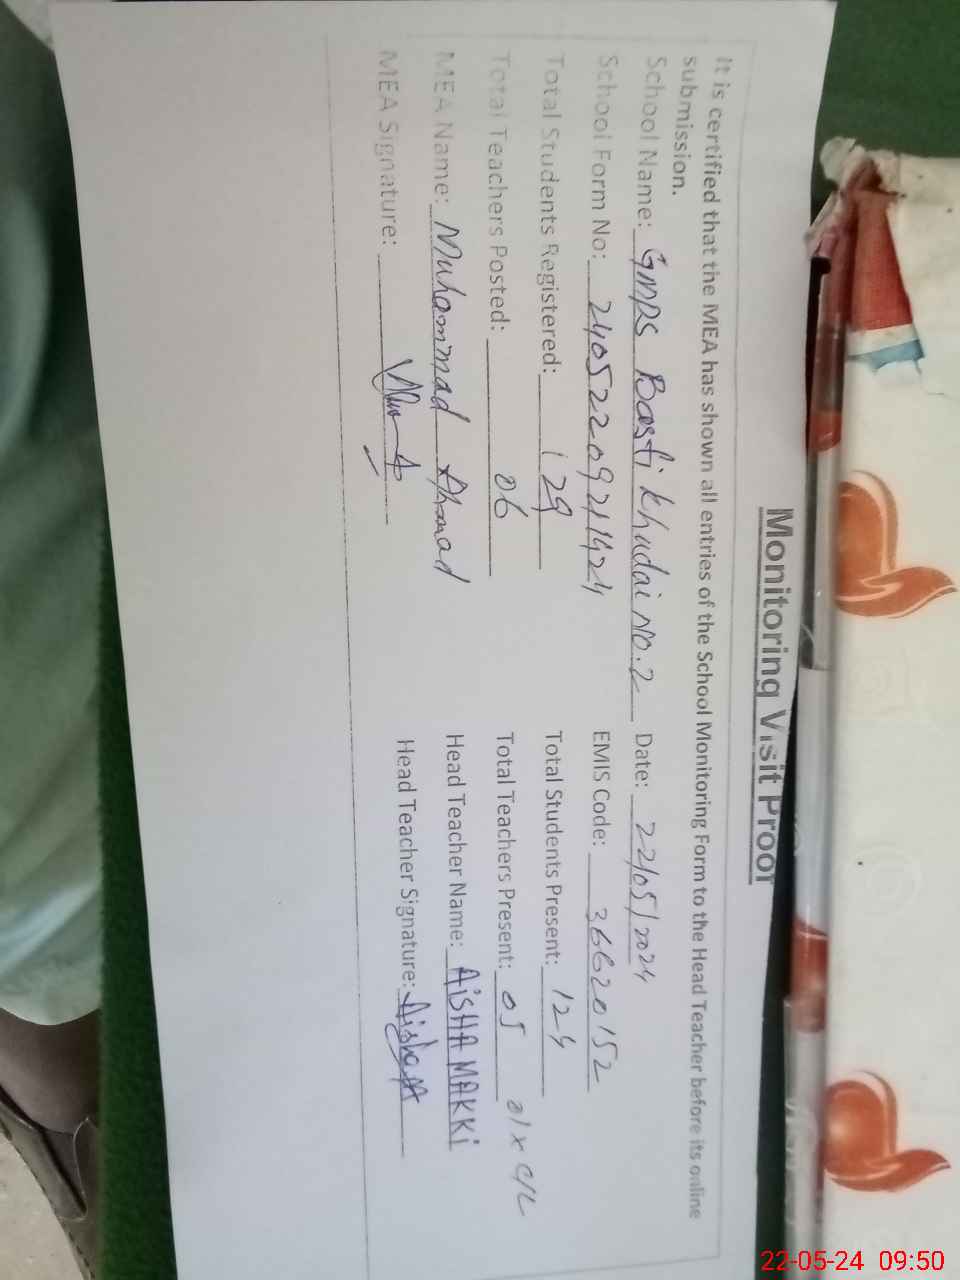 Monitoring Visit Proof
It is certified that the MEA has shown all entries of the School Monitoring Form to the Head Teacher before its online
submission.
School Name: GMPS Basti Khudai No.2 Date: 22/05/2024
School Form No: 2405220921424 EMIS Code: 36620152
Total Students Registered: 129 Total Students Present: 124
Total Teachers Posted: 06 Total Teachers Present: 05 01 x C/L
MEA Name: Muhammad Ahmad Head Teacher Name: AiSHA MAKKi
MEA Signature: Head Teacher Signature: Aisha
22-05-24 09:50